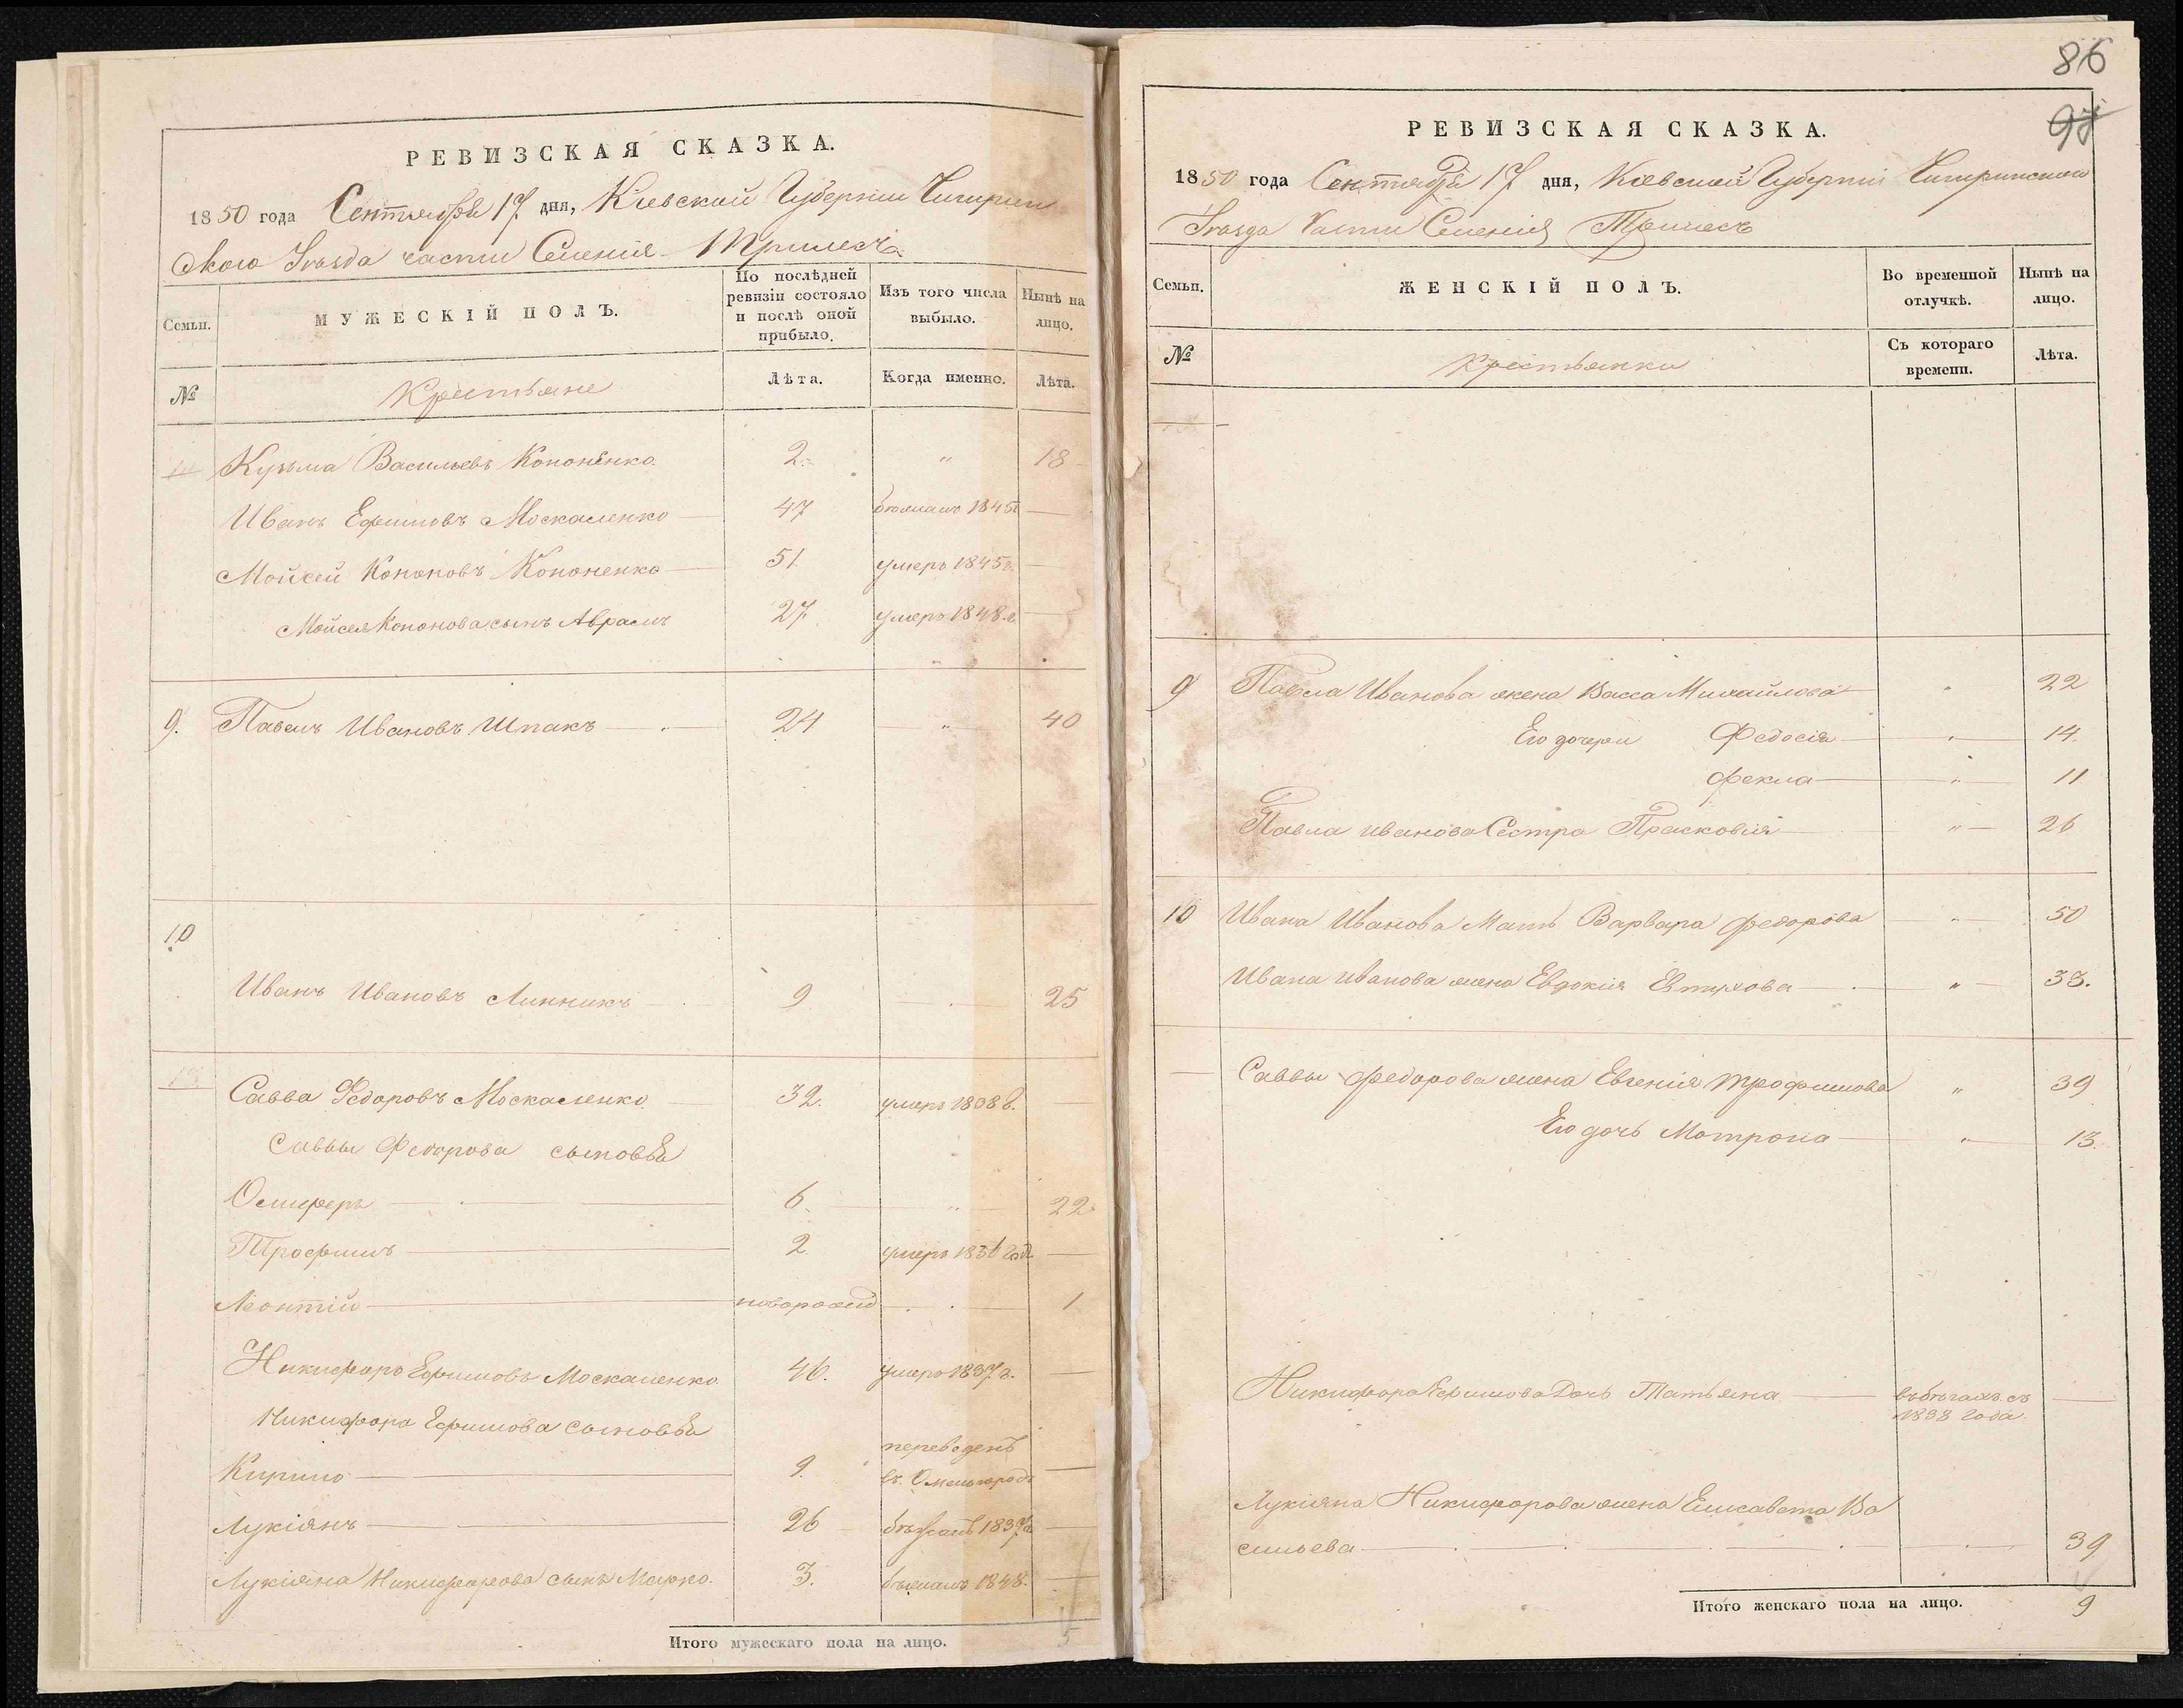 РЕВИЗСКАЯ СКАЗКА.
1850 года Сентября 17 дня, Кіевской Губерніи Чигирин
скаго Уѣзда части Селенія Трилесъ
Семьи.
МУЖЕСКІЙ ПОЛЪ.
По послѣдней ревизіи состояло и послѣ оной прибыло.
Изъ того числа выбыло.
Нынѣ на лицо.
№
Крестьяне
Лѣта.
Когда именно.
Лѣта.
Кузьма Васильевъ Кононенко 2. " 18
Иванъ Ефимовъ Москаленко 47 бѣжалъ 1845г
Мойсей Кононовъ Кононенко 51 умеръ 1845г.
Мойсея Кононова сынъ Аврамъ 27 умеръ 1848.г
9. Павелъ Ивановъ Шпакъ 24 " 40
10
Иванъ Ивановъ Линникъ 9 25
Савва Федоровъ Москаленко 32. умеръ
Саввы Федорова сыновья
6. " 22
Трофимъ 2 умеръ
Леонтій новорожд 1
Никифоръ Ефимовъ Москаленко 46. умеръ 1837г.
Никифора Ефимова сыновья
9. переведенъ
въ
Лукіянъ 26 бѣжалъ
Лукіяна Никифорова сынъ Марко. 3. бѣжалъ 1848.
Итого мужескаго пола на лицо. 5
86
97
РЕВИЗСКАЯ СКАЗКА.
1850 года Сентября 17 дня, Кіевской Губерніи Чигиринскаго
Уѣзда Части Селенія Трилесъ
Семьи.
ЖЕНСКІЙ ПОЛЪ.
Во временной отлучкѣ.
Нынѣ на лицо.
№
Крестьянки
Съ котораго времени.
Лѣта.
9 Павла Иванова жена Васса Михайлова " 22
Его дочери Федосія " 14.
Фекла " 11
Павла иванова Сестра Прасковія " 26
10 Ивана Иванова Мать Варвара Федорова " 50
Ивана иванова жена Евдокія Евтихова " 33.
Саввы Федорова жена Евгенія Трофимова " 39
Его дочь Мотрона " 13.
Никифора Ефимова Дочь Татьяна въ бѣгахъ съ
1838 года.
Лукіяна Никифорова жена Елисавета Ва
сильева 39
Итого женскаго пола на лицо. 9